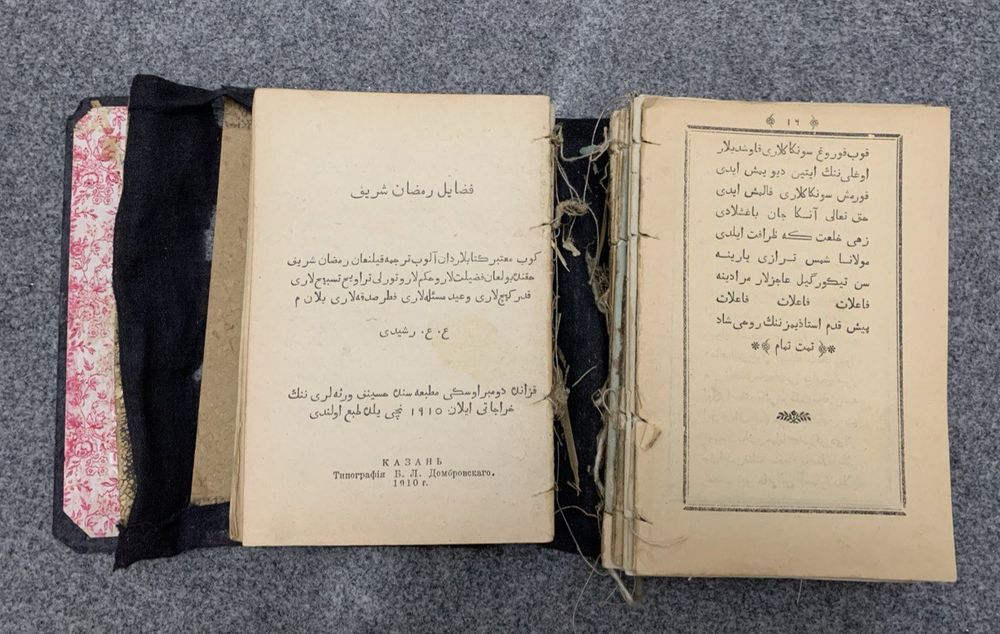 فضايل رمضان شريف
كوب معتبر كتابلاردان آلوب ترجمه قيلنغان رمضان شريف
حقنده بولغان فضيلت لار و حكم لار و تورلى تراويح تسبيح لارى
قدر كيچ لارى و عيد مسئله لارى فطر صدقه لارى بلان م
ع. ع. رشيدى
قزانده دومبراوسكى مطبعه سنده حسينف ورثه لرى ننك
خراجاتى ايلان ١٩١٠ نچى يلده طبع اولندى
КАЗАНЬ
Типографія Б. Л. Домбровскаго.
1910 г.
١٦
قوب قوروغ سونكاكلارى قاوشديلار
اوغلى ننك ايتين ديو يمش ايدى
قورمش سونكاكلارى قالمش ايدى
حق تعالى آنكا جان باغشلادى
زهى خلعت كه ظرافت ايلدى
مولانا شمس ترازى يارينه
سن تيكورگيل عاجزلار مرادينه
فاعلات فاعلات فاعلات
پيش قدم استاذيمزننك روحى شاد
تمت تمام